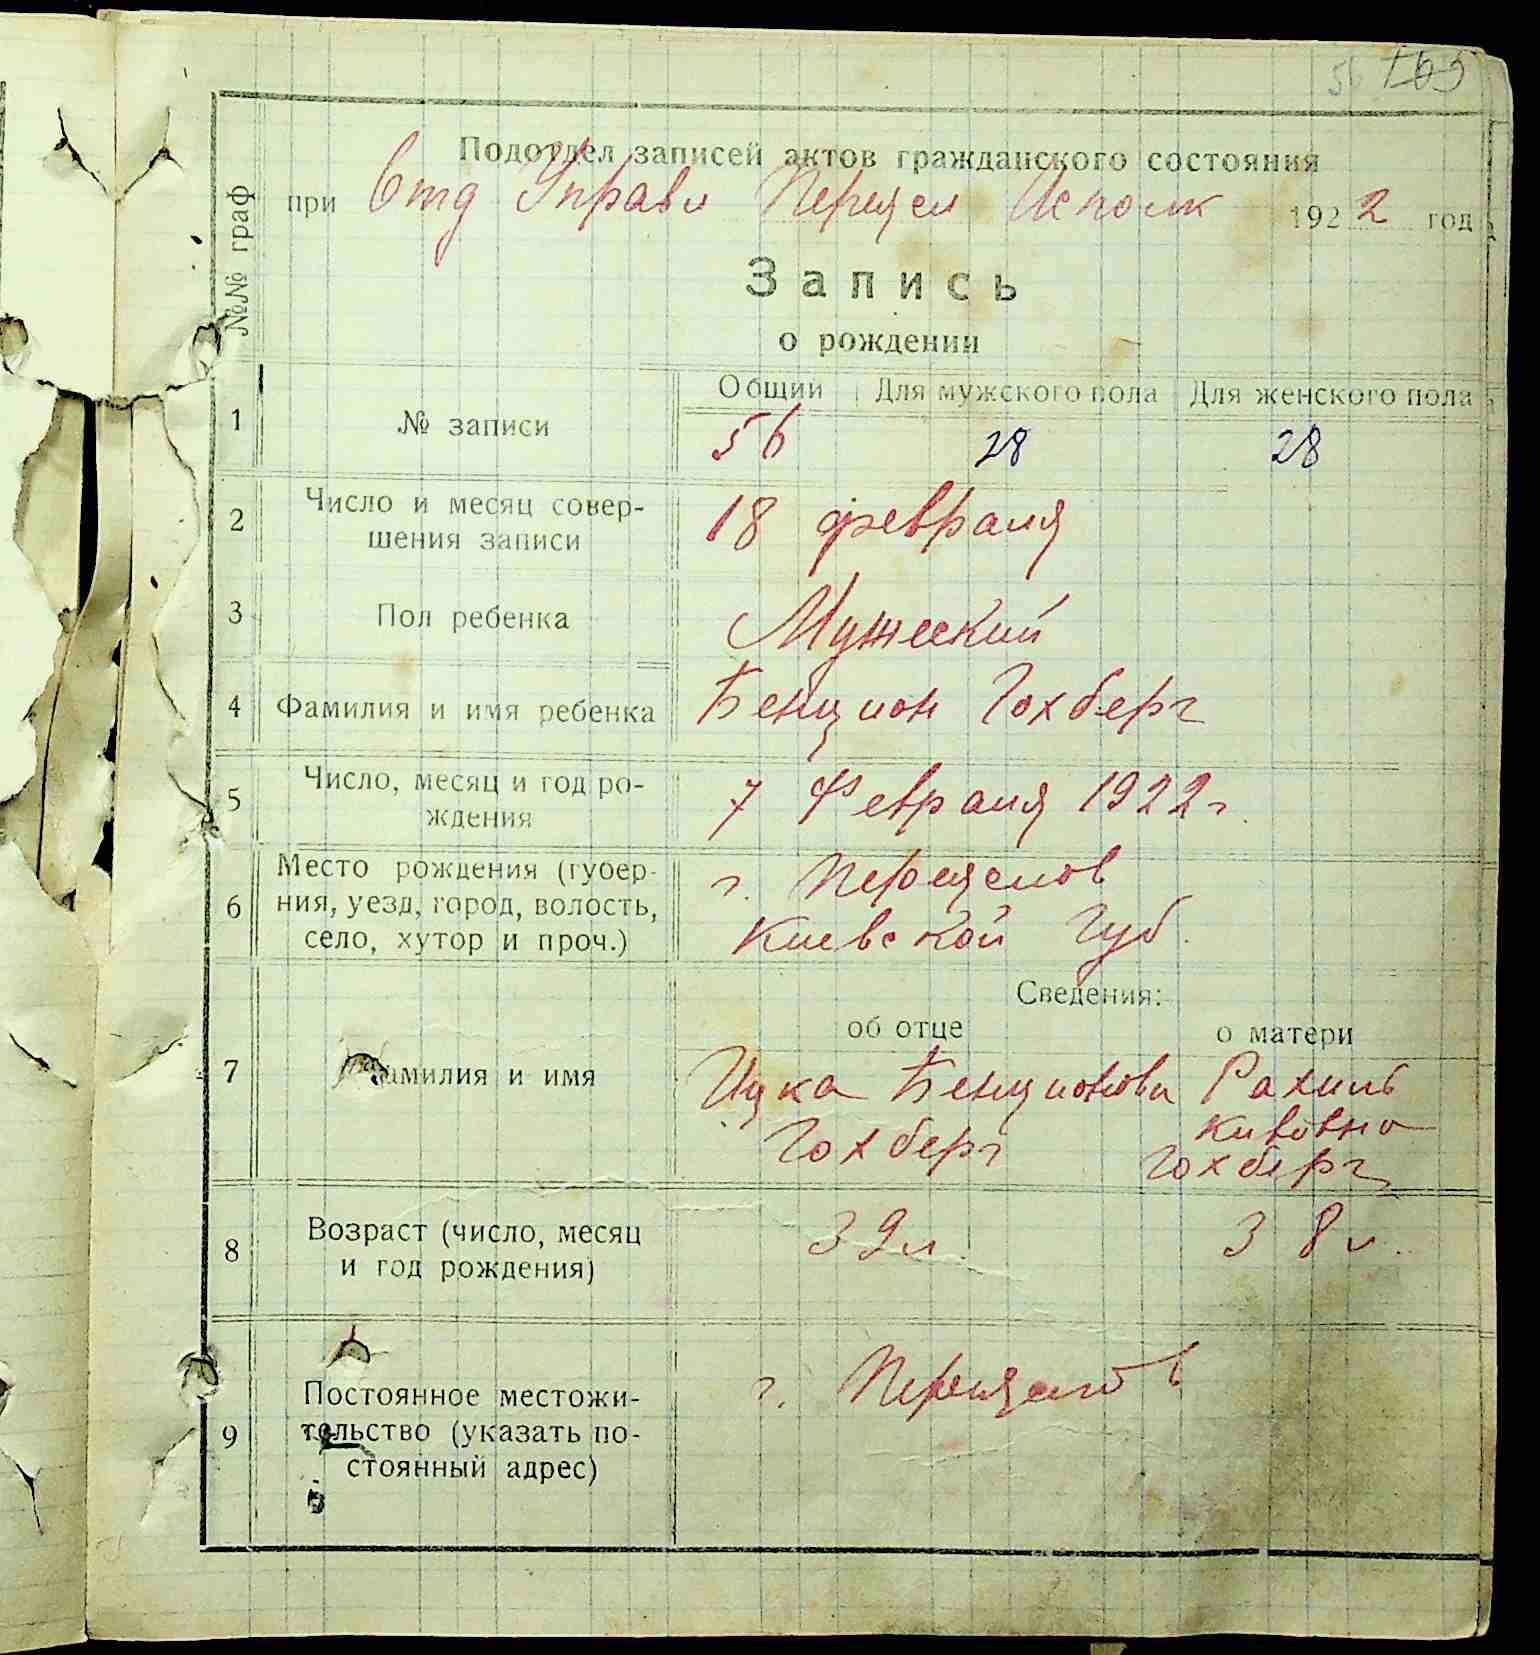 56 165
Подотдел записей актов гражданского состояния
при Отд Управл Перещел Исполк 1922 год
№№ граф
Запись
о рождении
Общий Для мужского пола Для женского пола
1 № записи 56 28 28
2 Число и месяц совер-
шения записи 18 февраля
3 Пол ребенка Мужеский
4 Фамилия и имя ребенка Бенцион Гохберг
5 Число, месяц и год ро-
ждения 7 Февраля 1922 г.
6 Место рождения (губер-
ния, уезд, город, волость,
село, хутор и проч.)
г. Перещепов
Киевской Губ.
Сведения:
об отце о матери
7 Фамилия и имя
Ицка Бенционови Рахиль
Кивовна
Гохберг Гохберг
8 Возраст (число, месяц
и год рождения)
39 л. 38 л.
9 Постоянное местожи-
тельство (указать по-
стоянный адрес)
г. Перещепов